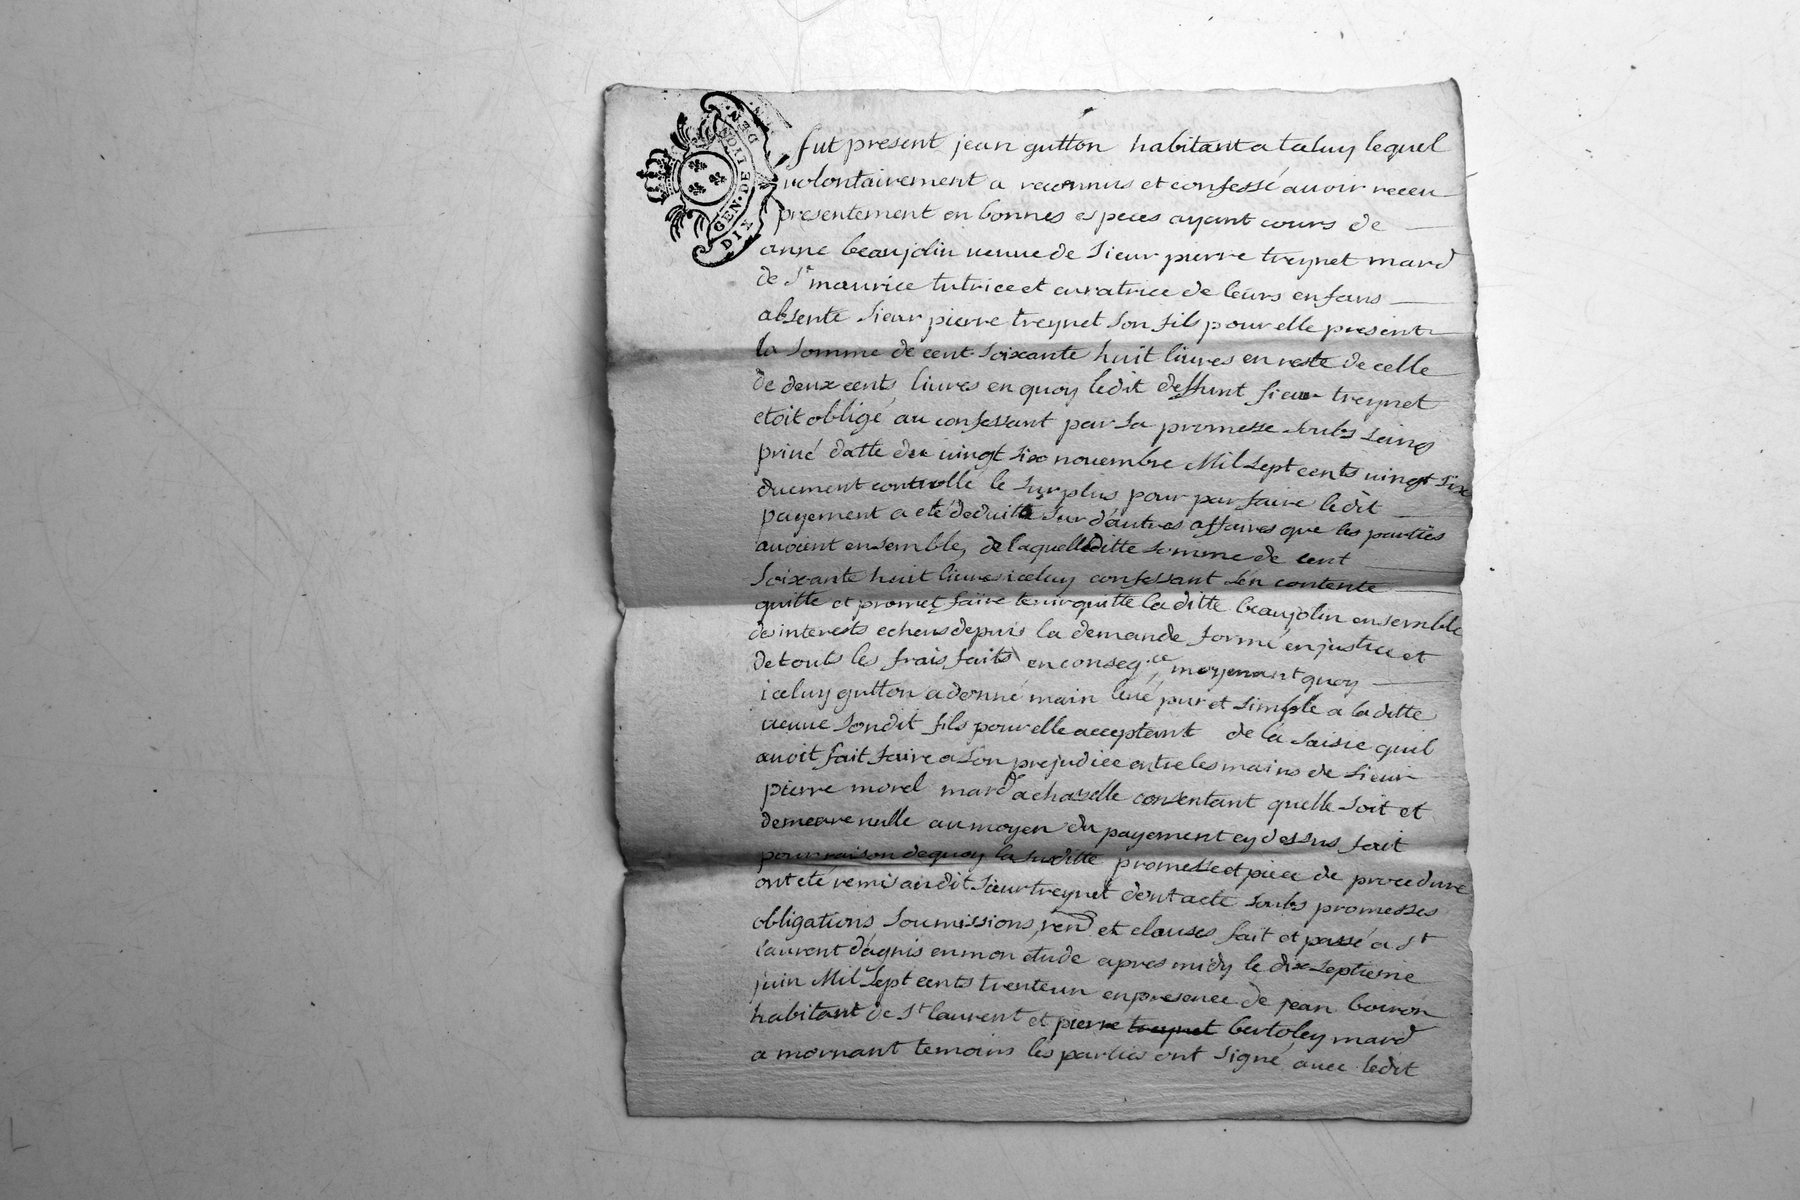 GEN. DE LYON
DIX DEN.
fut present jean gutton habitant a taluy lequel
volontairement a reconnus et confessé auoir receu
presentement en bonnes especes ayant cours de
anne beaujolin ueuue de Sieur pierre treynet mard
de St maurice tutrice et curatrice de leurs enfans
absente Sieur pierre treynet Son fils pour elle present
la Somme de cent Soixante huit liures en reste de celle
de deux cents liures en quoy ledit deffunt Sieur treynet
etoit obligé au confessant par Sa promesse Soubs Seing
priué datte du uingt Six nouembre Mil Sept cents uingt Six
duement controlle le Surplus pour parfaire ledit
payement a eté deduitte Sur d'autres affaires que les parties
auoient ensemble, de laquelle ditte Somme de cent
Soixante huit liures iceluy confessant S'en contente
quitte et promet faire tenir quitte la ditte beaujolin ensemble
des interests echeus depuis la demande formé en justice et
de touts les frais faits en conseq.ce, moyenant quoy
iceluy gutton a donné main leué pur et Simple a la ditte
ueuue Son dit fils pour elle acceptant de la Saisie quil
auoit fait faire a Son prejudice entre les mains de Sieur
pierre morel mard a chaselle consentant quelle Soit et
demeure nulle au moyen du payement cy dessus fait
pour raison de quoy la Susditte promesse et piece de procedure
ont eté remis audit Sieur treynet dont acte Soubs promesses
obligations Soumissions, rend et clauses fait et passé a St
laurent d'agnis en mon etude apres midy le dix Septieme
juin Mil Sept cents trente un en presence de jean boiron
habitant de St laurent et pierre treynet bertoley mard
a mornant temoins les parties ont Signé auec ledit